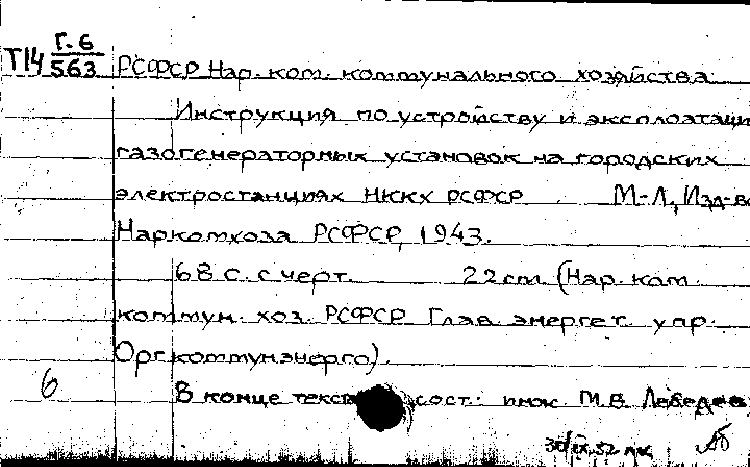 Т14 Г.6
563
РСФСР Нар. ком. коммунального хозяйства.
Инструкция по устройству и эксплоатации
газогенераторных установок на городских
электростанциях НККХ РСФСР М-Л, Изд-во
Наркомхоза РСФСР, 1943.
68 с. с черт. 22 cm (Нар. ком
коммун. хоз. РСФСР Глав. энергет. упр.
Оргкоммунэнерго).
6
В конце текста сост.: инж. М.В. Лебедев
30/IX.52